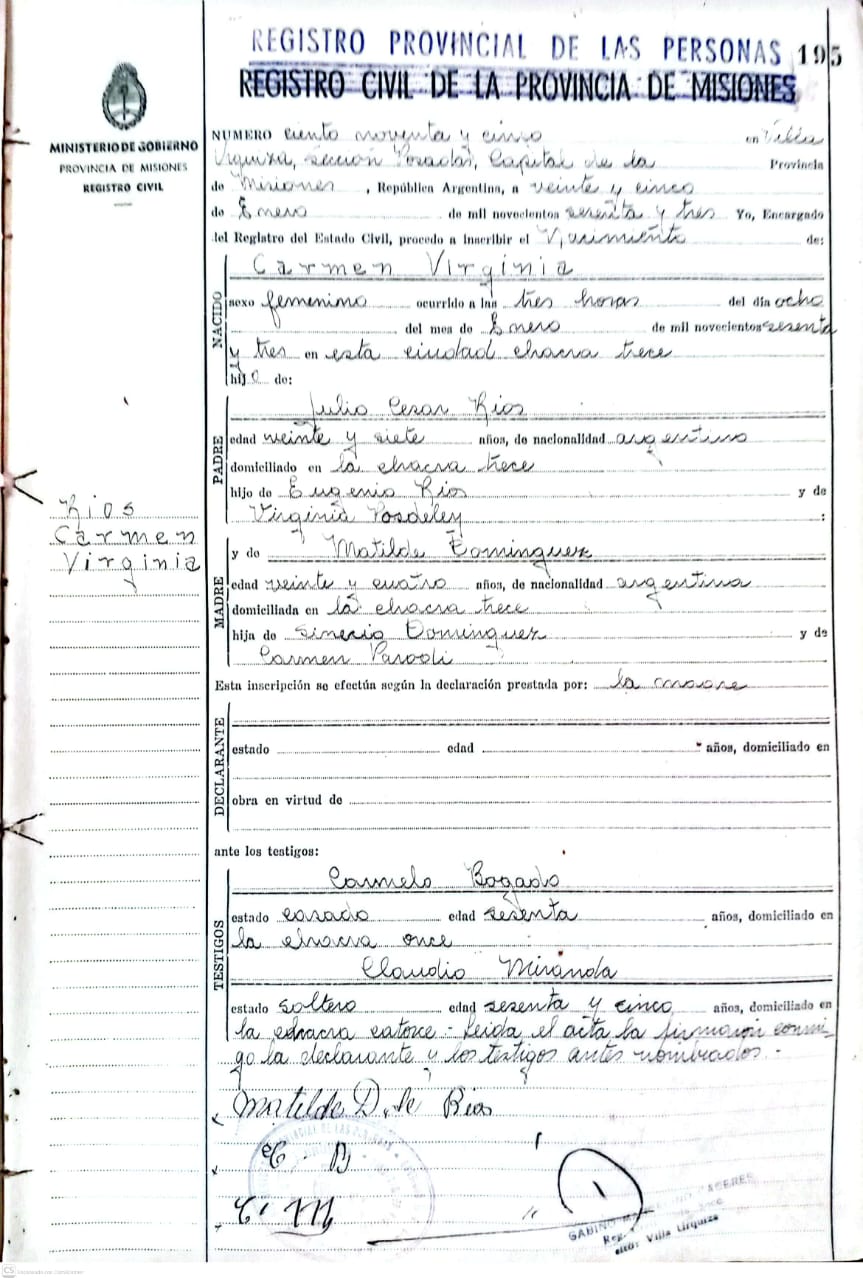 REGISTRO PROVINCIAL DE LAS PERSONAS 195
REGISTRO CIVIL DE LA PROVINCIA DE MISIONES
MINISTERIO DE GOBIERNO
PROVINCIA DE MISIONES
REGISTRO CIVIL
NUMERO ciento noventa y cinco en Villa
Urquiza, sección Posadas, Capital de la Provincia
de Misiones, República Argentina, a veinte y cinco
de Enero de mil novecientos sesenta y tres Yo, Encargado
del Registro del Estado Civil, procedo a inscribir el Nacimiento de:
NACIDO
Carmen Virginia
sexo femenino ocurrido a las tres horas del día ocho
del mes de Enero de mil novecientos sesenta
y tres en esta ciudad chacra trece
hij a de:
PADRE
Julio Cesar Rios
edad veinte y siete años, de nacionalidad argentino
domiciliado en la chacra trece
hijo de Eugenio Rios y de
Virginia Posdeley :
Rios
Carmen
Virginia
MADRE
y de Matilde Dominguez
edad veinte y cuatro años, de nacionalidad argentina
domiciliada en la chacra trece
hija de Sinecio Dominguez y de
Carmen Parodi
Esta inscripción se efectúa según la declaración prestada por: la madre
DECLARANTE
estado edad años, domiciliado en
obra en virtud de
ante los testigos:
TESTIGOS
Carmelo Bogado
estado casado edad sesenta años, domiciliado en
la chacra once
Claudio Miranda
estado soltero edad sesenta y cinco años, domiciliado en
la chacra catorce - Leida el acta la firmaron conmi-
go la declarante y los testigos antes nombrados -
Matilde D. de Rios
C B
C M
GABINO CACERES
Villa Urquiza
CS Escaneado con CamScanner